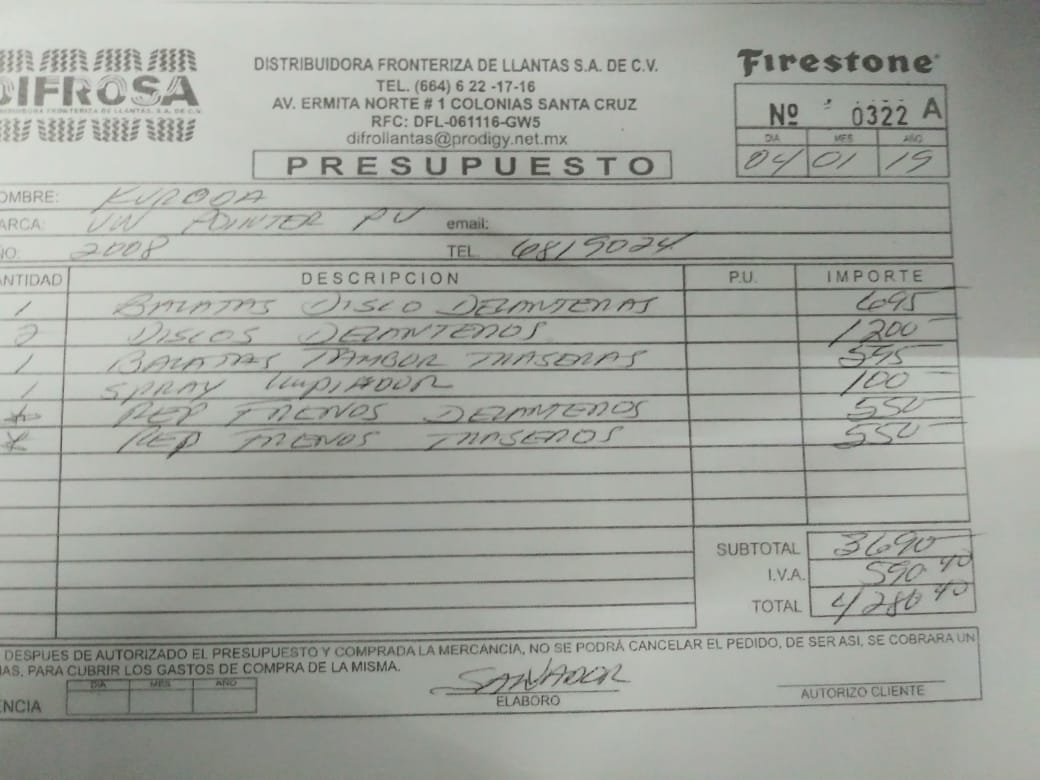 DIFROSA
DISTRIBUIDORA FRONTERIZA DE LLANTAS, S.A. DE C.V.
DISTRIBUIDORA FRONTERIZA DE LLANTAS S.A. DE C.V.
TEL. (664) 6 22 -17-16
AV. ERMITA NORTE # 1 COLONIAS SANTA CRUZ
RFC: DFL-061116-GW5
difrollantas@prodigy.net.mx
PRESUPUESTO
Firestone
Nº 0322 A
DIA MES AÑO
04 01 19
OMBRE: KURODA
ARCA: VW POINTER PU email:
ÑO: 2008 TEL. 6819024
ANTIDAD DESCRIPCION P.U. IMPORTE
1 BALATAS DISCO DELANTERAS 695
2 DISCOS DELANTEROS 1200
1 BALATAS TAMBOR TRASERAS 595
1 SPRAY LIMPIADOR 100
* REP FRENOS DELANTEROS 550
* REP FRENOS TRASEROS 550
SUBTOTAL 3690
I.V.A. 590.40
TOTAL 4280.40
DESPUES DE AUTORIZADO EL PRESUPUESTO Y COMPRADA LA MERCANCIA, NO SE PODRÁ CANCELAR EL PEDIDO, DE SER ASI, SE COBRARA UN
MAS, PARA CUBRIR LOS GASTOS DE COMPRA DE LA MISMA.
DIA MES AÑO
ENCIA
SALVADOR
ELABORO
AUTORIZO CLIENTE